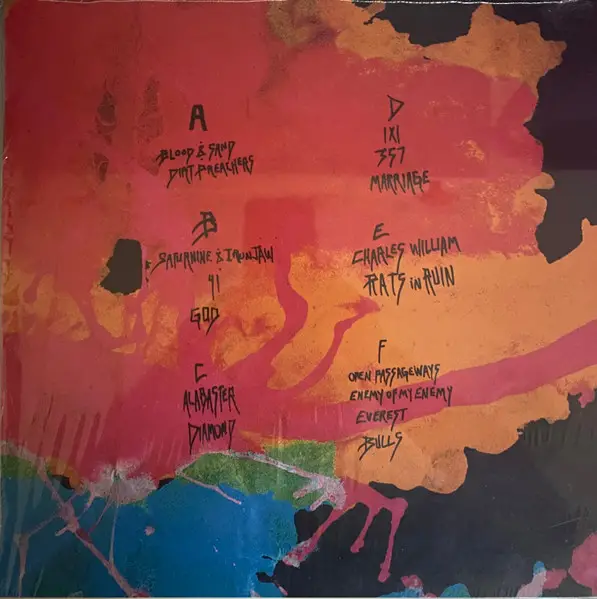 A
BLOOD & SAND
DIRT PREACHERS
B
SATURNINE & IRON JAW
41
GOD
C
ALABASTER
DIAMOND
D
IXI
357
MARRIAGE
E
CHARLES WILLIAM
RATS in RUIN
F
OPEN PASSAGEWAYS
ENEMY OF MY ENEMY
EVEREST
BULLS